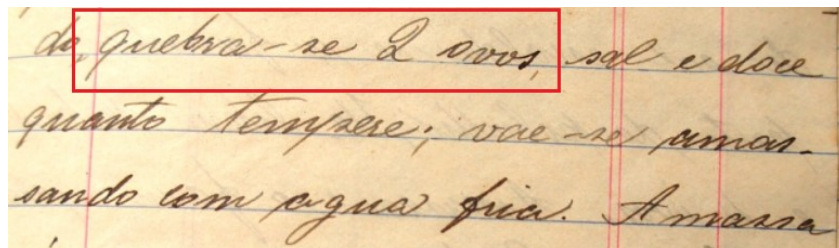 do, quebra-se 2 ovos, sal e doce
quanto tempere; vae-se amas-
sando com agua fria. A massa